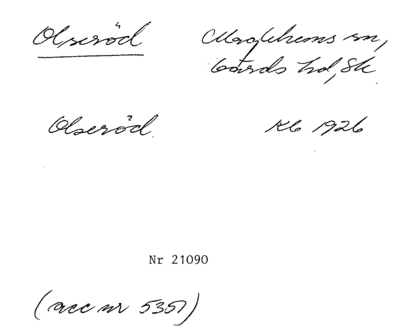 Olseröd Maglehems sn,
Gärds hd, Sk
Olseröd. Kb 1926
Nr 21090
(acc nr 5351)